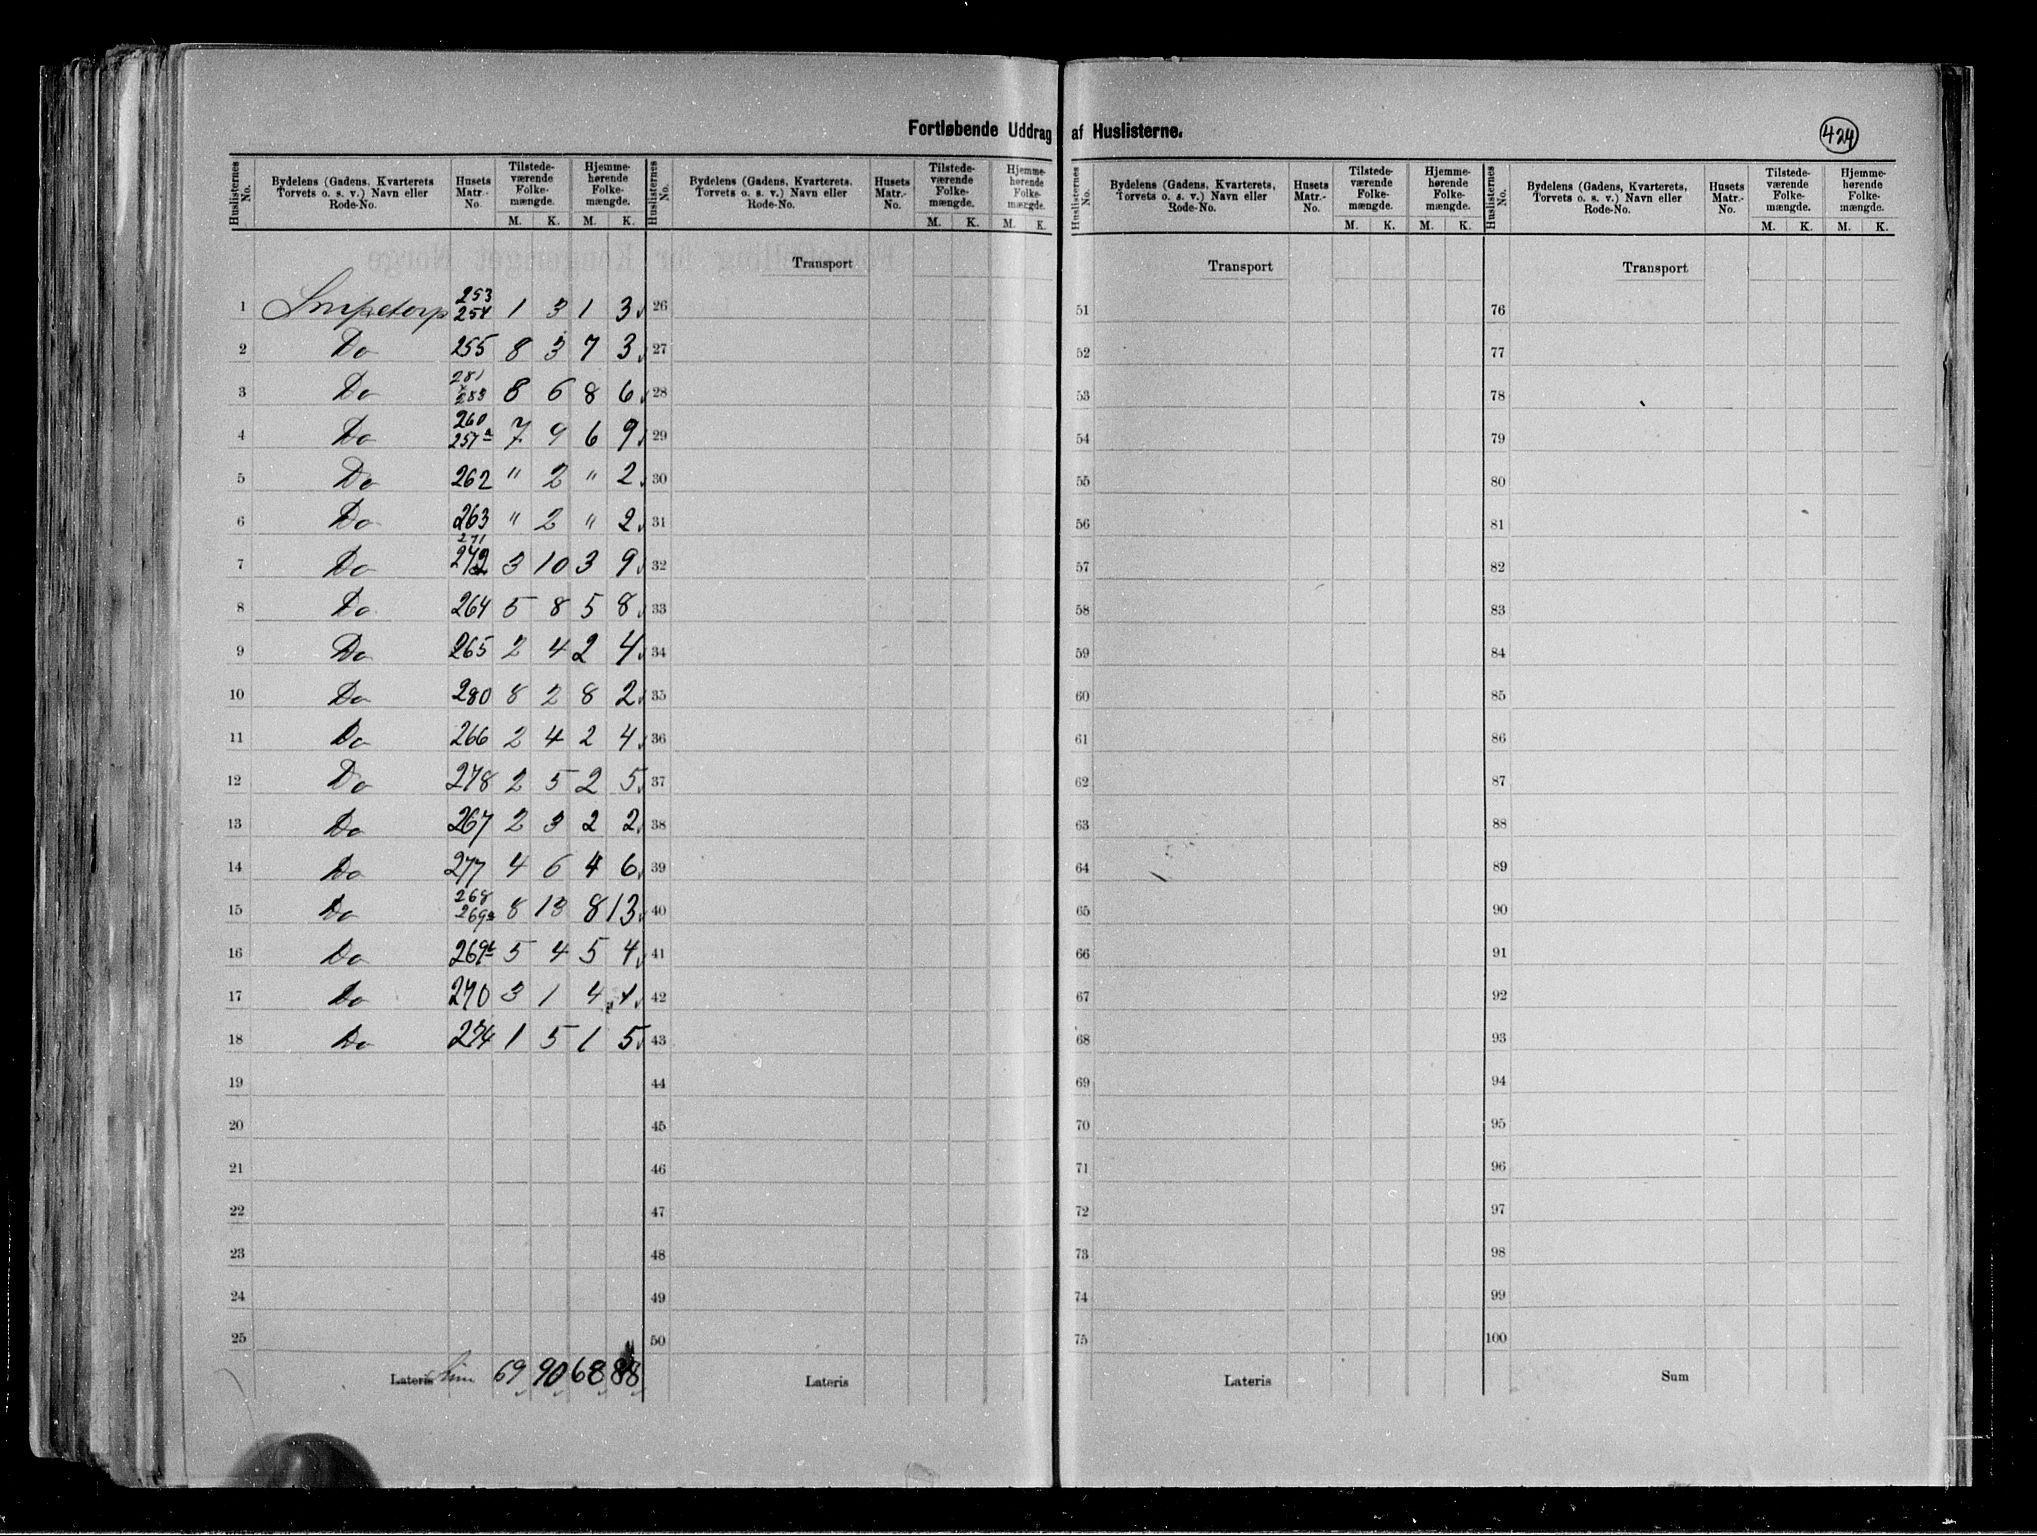 Fortløbende Uddrag af Huslisterne.
424
Huslisternes No. | Bydelens (Gadens, Kvarterets, Torvets o. s. v.) Navn eller Rode-No. | Husets Matr.-No. | Tilstedeværende Folkemængde. M. K. | Hjemmehørende Folkemængde. M. K.
1 253 254 1 3 1 3
2 Do 255 8 3 7 3
3 Do 281 283 8 6 8 6
4 Do 260 257a 7 9 6 9
5 Do 262 " 2 " 2
6 Do 263 " 2 " 2
7 Do 271 272 3 10 3 9
8 Do 264 5 8 5 8
9 Do 265 2 4 2 4
10 Do 280 8 2 8 2
11 Do 266 2 4 2 4
12 Do 278 2 5 2 5
13 Do 267 2 3 2 2
14 Do 277 4 6 4 6
15 Do 268 269a 8 13 8 13
16 Do 269b 5 4 5 4
17 Do 270 3 1 4 1
18 Do 274 1 5 1 5
19
20
21
22
23
24
25
Lateris 69 90 68 88
Huslisternes No. | Bydelens (Gadens, Kvarterets, Torvets o. s. v.) Navn eller Rode-No. | Husets Matr.-No. | Tilstedeværende Folkemængde. M. K. | Hjemmehørende Folkemængde. M. K.
Transport
26
27
28
29
30
31
32
33
34
35
36
37
38
39
40
41
42
43
44
45
46
47
48
49
50
Lateris
Huslisternes No. | Bydelens (Gadens, Kvarterets, Torvets o. s. v.) Navn eller Rode-No. | Husets Matr.-No. | Tilstedeværende Folkemængde. M. K. | Hjemmehørende Folkemængde. M. K.
Transport
51
52
53
54
55
56
57
58
59
60
61
62
63
64
65
66
67
68
69
70
71
72
73
74
75
Lateris
Huslisternes No. | Bydelens (Gadens, Kvarterets, Torvets o. s. v.) Navn eller Rode-No. | Husets Matr.-No. | Tilstedeværende Folkemængde. M. K. | Hjemmehørende Folkemængde. M. K.
Transport
76
77
78
79
80
81
82
83
84
85
86
87
88
89
90
91
92
93
94
95
96
97
98
99
100
Sum